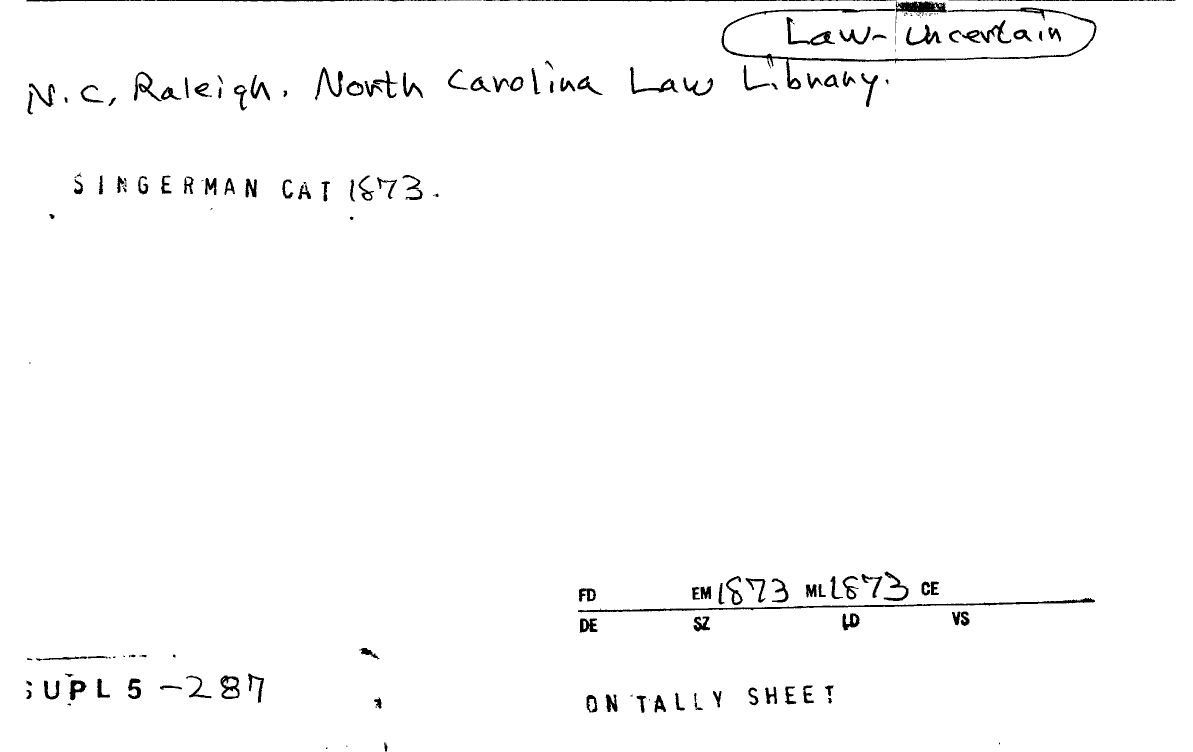 Law-Uncertain
N.C, Raleigh. North Carolina Law Library.
SINGERMAN CAT 1873.
FD EM 1873 ML 1873 CE
DE SZ LD VS
SUPL 5-287
ON TALLY SHEET